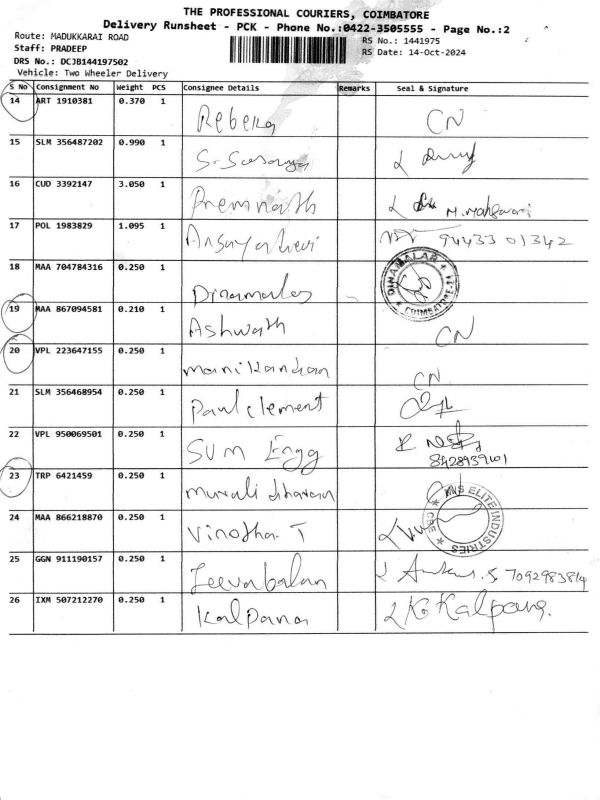 THE PROFESSIONAL COURIERS, COIMBATORE
Delivery Runsheet - PCK - Phone No.:0422-3505555 - Page No.:2
Route: MADUKKARAI ROAD
RS No.: 1441975
Staff: PRADEEP
RS Date: 14-Oct-2024
DRS No.: DCJB144197502
Vehicle: Two Wheeler Delivery
S No Consignment No Weight PCS Consignee Details Remarks Seal & Signature
14 ART 1910381 0.370 1 Rebeka CN
15 SLM 356487202 0.990 1
16 CUD 3392147 3.050 1 Premnath
17 POL 1983829 1.095 1 94433 01342
18 MAA 704784316 0.250 1 Dinamalar DINAMALAR COIMBATORE
19 MAA 867094581 0.210 1 Ashwath CN
20 VPL 223647155 0.250 1 manikandan CN
21 SLM 356468954 0.250 1 Paul clement
22 VPL 950069501 0.250 1 SUM Engg
23 TRP 6421459 0.250 1 murali dharan
24 MAA 866218870 0.250 1 Vinotha T ELITE INDUSTRIES CBE
25 GGN 911190157 0.250 1 Jeevabalan
26 IXM 507212270 0.250 1 Kalpana Kalpana.